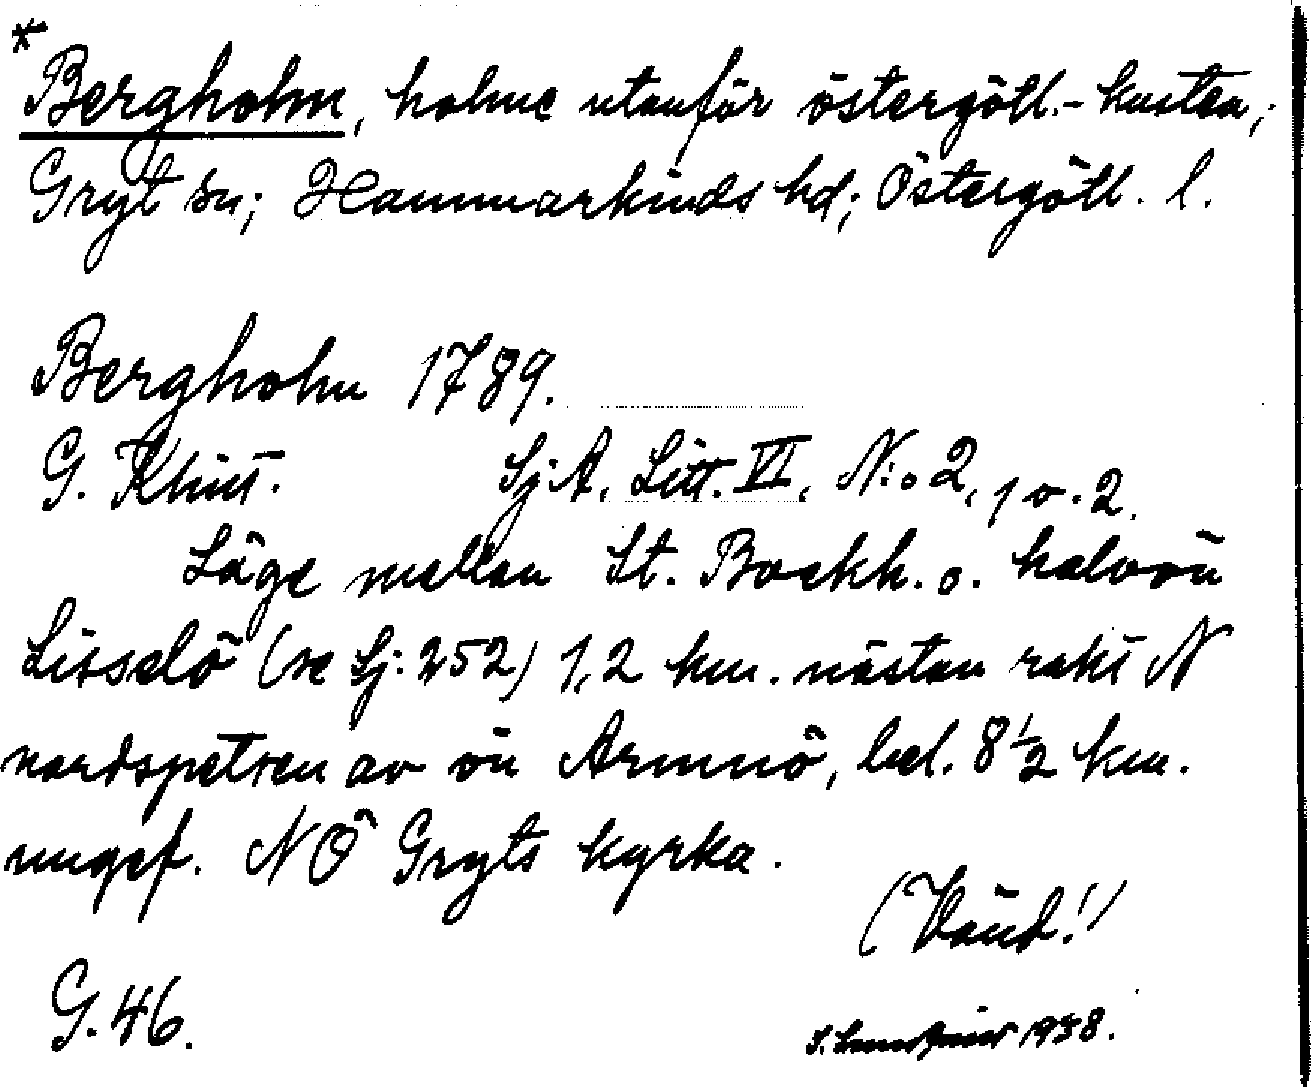 *
Bergholm, holme utanför östergötl.-kusten,;
Gryt sn; Hammarkinds hd; Östergötl. l.
Bergholm 1789.
G. Klint. Sj:A, Litt. VI, N:o 2, 1 o. 2.
Läge mellan St. Bockh. o. halvön
Lisselö (se Sj: 252) 1,2 km. nästan rakt N
nordspetsen av ön Armnö, bel. 8 1/2 km.
ungef. NÖ Gryts kyrka.
(Vänd!)
G. 46.
S. Lundqvist 1938.